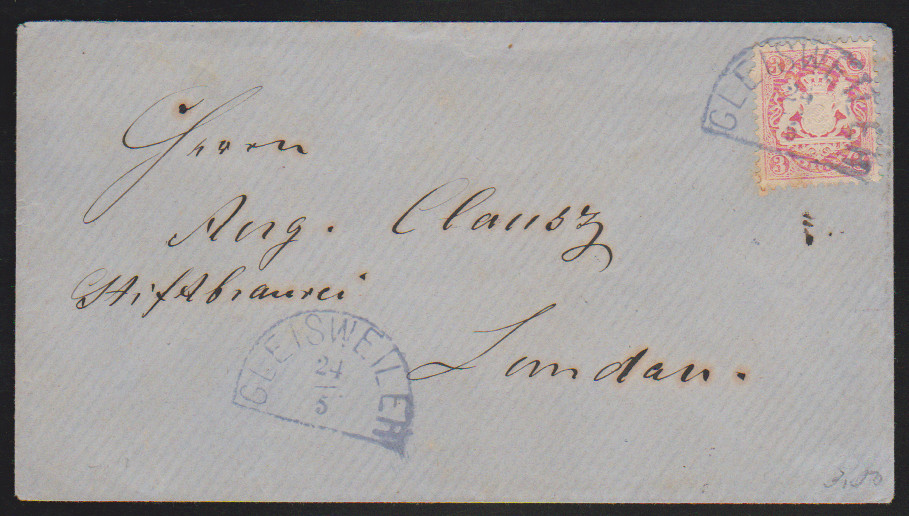 GLEISWEILER
3 3
3
Herrn
Aug. Clausz
Stiftbrauerei
Landau.
GLEISWEILER
24
5